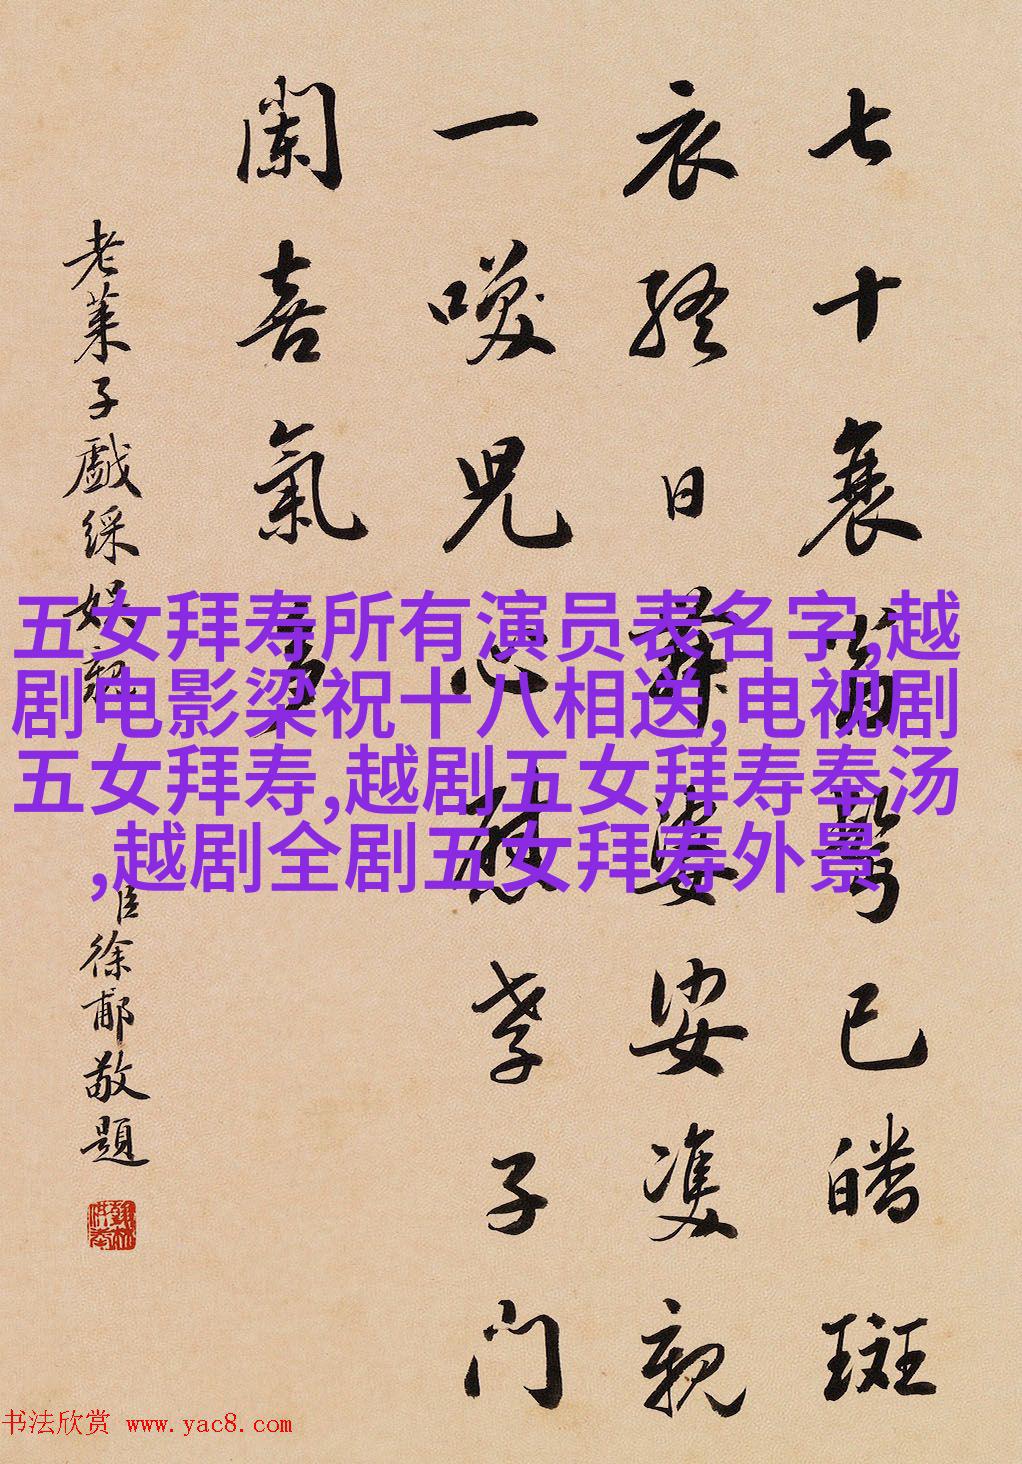 七十衰翁鬢已皤斑
衣終日舞婆娑雙親
一兒心慰孝子門
闌喜氣多
老萊子戲綵娛親
臣徐郙敬題
五女拜寿所有演员表名字,越
剧电影梁祝十八相送,电视剧
五女拜寿,越剧五女拜寿奉汤
,越剧全剧五女拜寿外景
书法欣赏 www.yac8.com